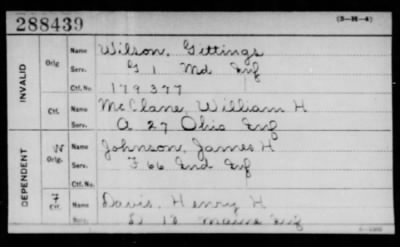 288439
(3-H-4)
INVALID
Orig. Name Wilson, Gittings
Serv. G 1 Md Inf
Ctf. No. 179377
Ctf. Name McClane, William H
Serv. A 27 Ohio Inf
DEPENDENT
W Orig. Name Johnson, James H
Serv. F 66 Ind Inf
Ctf. No.
F Ctf. Name Davis, Henry H
Serv. D 18 Maine Inf